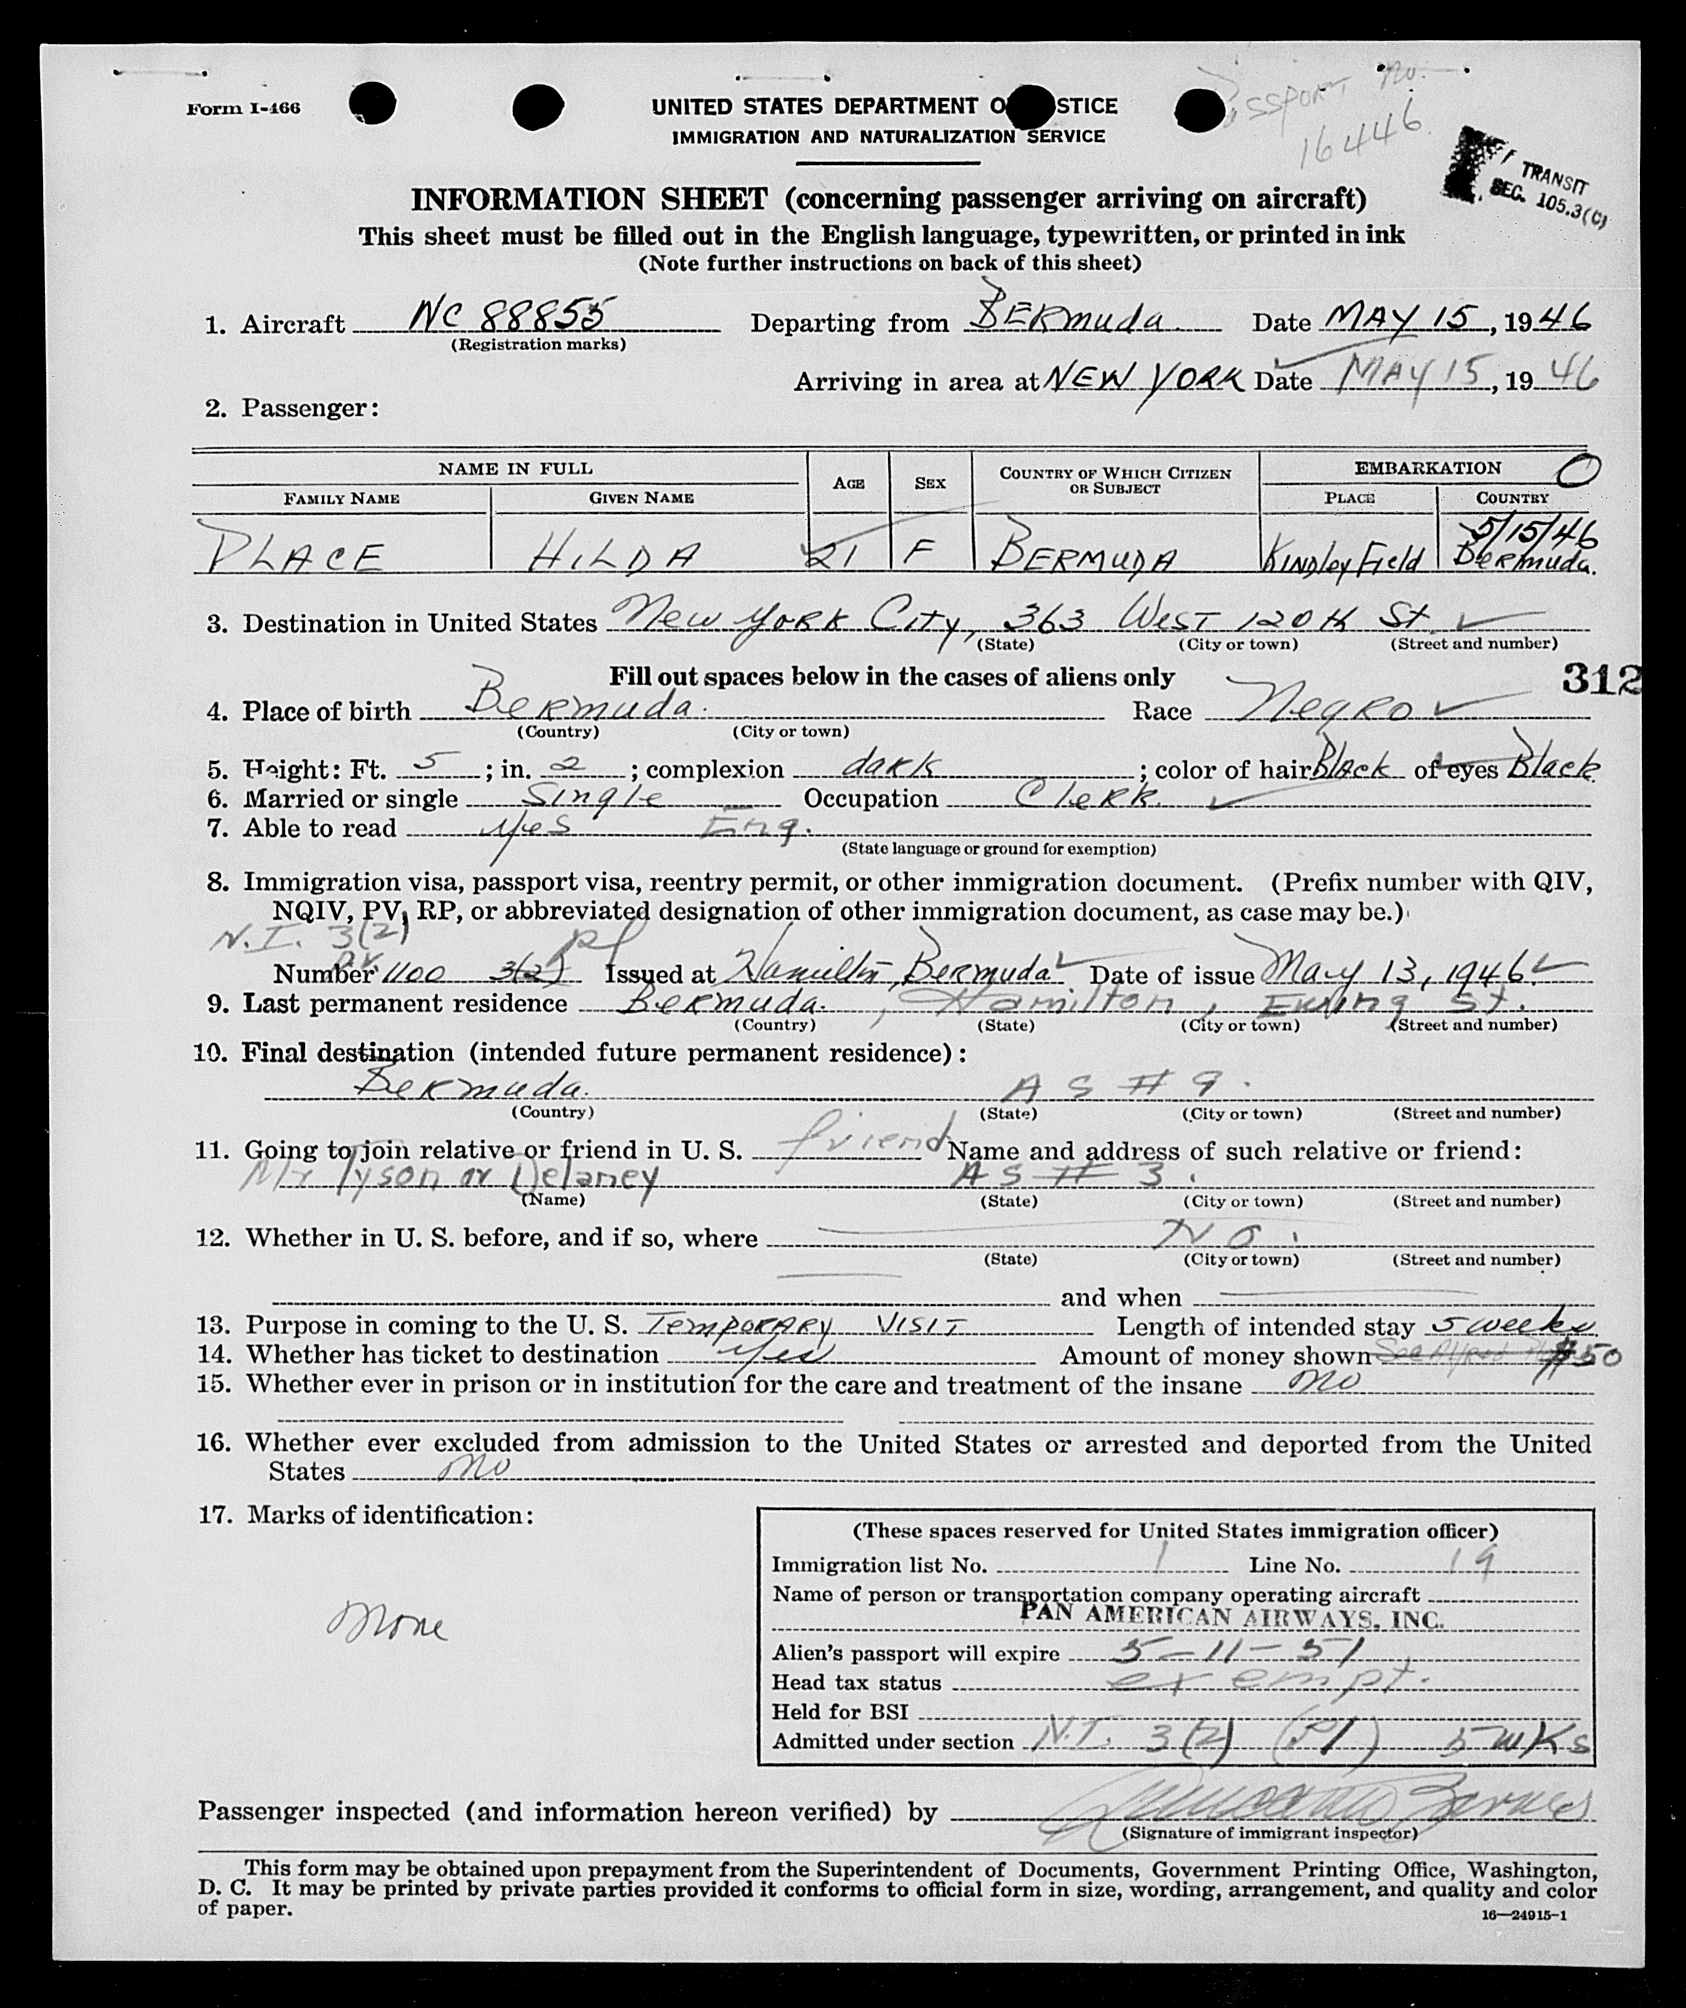 Form I-466
UNITED STATES DEPARTMENT O STICE
IMMIGRATION AND NATURALIZATION SERVICE
Passport No.
16446
TRANSIT
SEC. 105.3(C)
INFORMATION SHEET (concerning passenger arriving on aircraft)
This sheet must be filled out in the English language, typewritten, or printed in ink
(Note further instructions on back of this sheet)
1. Aircraft NC 88855 Departing from BERmuda Date MAY 15, 1946
(Registration marks)
Arriving in area at NEW YORK Date MAY 15, 1946
2. Passenger:
NAME IN FULL AGE SEX COUNTRY OF WHICH CITIZEN OR SUBJECT EMBARKATION O
FAMILY NAME GIVEN NAME PLACE COUNTRY
5/15/46
PLACE HILDA 21 F BERMUDA Kindley Field Bermuda.
3. Destination in United States New York City, 363 West 120th St
(State) (City or town) (Street and number)
Fill out spaces below in the cases of aliens only
312
4. Place of birth Bermuda. Race Negro
(Country) (City or town)
5. Height: Ft. 5; in. 2; complexion dark; color of hair Black of eyes Black
6. Married or single Single Occupation Clerk.
7. Able to read yes Eng.
(State language or ground for exemption)
8. Immigration visa, passport visa, reentry permit, or other immigration document. (Prefix number with QIV,
NQIV, PV, RP, or abbreviated designation of other immigration document, as case may be.)
N.I. 3(2)
Number 1100 3(2) Issued at Hamilton, Bermuda Date of issue May 13, 1946
9. Last permanent residence Bermuda., Hamilton, Ewing St.
(Country) (State) (City or town) (Street and number)
10. Final destination (intended future permanent residence):
Bermuda. AS # 9.
(Country) (State) (City or town) (Street and number)
11. Going to join relative or friend in U. S. friend Name and address of such relative or friend:
Mr Tyson or Delaney AS # 3.
(Name) (State) (City or town) (Street and number)
12. Whether in U. S. before, and if so, where No.
(State) (City or town) (Street and number)
and when
13. Purpose in coming to the U. S. TEMPORARY VISIT Length of intended stay 5 weeks
14. Whether has ticket to destination yes Amount of money shown $50
15. Whether ever in prison or in institution for the care and treatment of the insane no
16. Whether ever excluded from admission to the United States or arrested and deported from the United
States no
17. Marks of identification:
none
(These spaces reserved for United States immigration officer)
Immigration list No. 1 Line No. 19
Name of person or transportation company operating aircraft
PAN AMERICAN AIRWAYS, INC.
Alien's passport will expire 5-11-51
Head tax status exempt.
Held for BSI
Admitted under section N.I. 3(2) (P1) 5 wks
Passenger inspected (and information hereon verified) by
(Signature of immigrant inspector)
This form may be obtained upon prepayment from the Superintendent of Documents, Government Printing Office, Washington,
D. C. It may be printed by private parties provided it conforms to official form in size, wording, arrangement, and quality and color
of paper.
16—24915-1